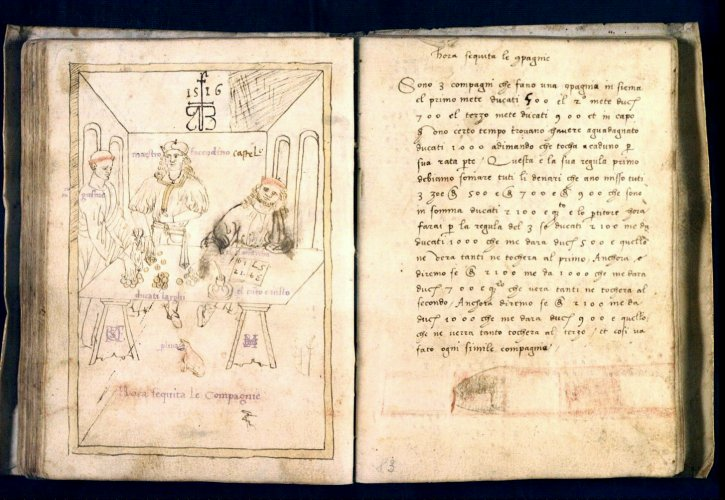 1516
maestro facendino castelo
ducati larghi
pinat
hora sequita le Compagnie
hora sequita le cpagnie
Sono 3 compagni che fano una cpagnia in siema
el primo mete ducati 500 el 2 mete ducj
700 el terzo mete ducati 900 et in capo
ono certo tempo trovano havere aguadagnato
ducati 1000 adimando che tocha acaduno p
sua rata pte. Questa e la sua regula primo
debiamo somare tuti li denari che ano misso tuti
3 zoe @ 500 e @ 700 e @ 900 che sono
in somma ducati 2100 e qto e lo ptitore hora
farai p la regula del 3 se ducati 2100 me da
ducati 1000 che me dara ducj 500 e quello
ne vera tanti ne tochera al primo. Anchora
diremo se @ 2100 me da 1000 che me dara
ducj 700 e qto che vera tanti ne tochera al
secondo. Anchora diremo se @ 2100 me da
ducj 1000 che me dara ducj 900 e quello
che ne verra tanto tochera al terzo, et cosi va
fato ogni simile compagnia